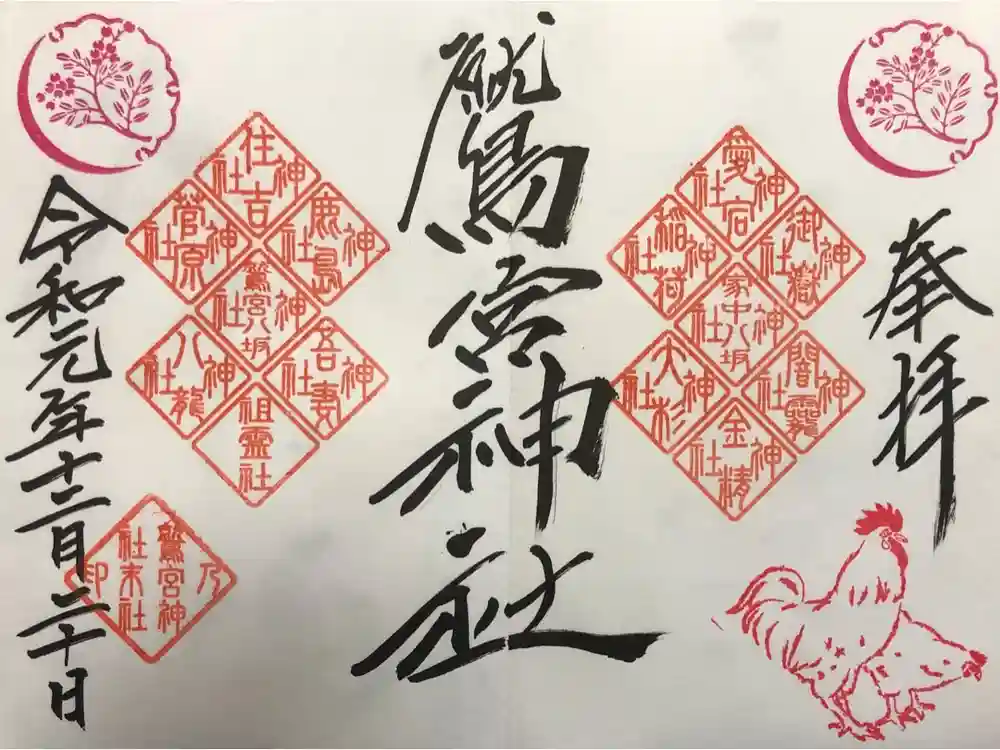 奉拝
愛宕神社
御嶽神社
稲荷神社
家中八坂神社
闇龗神社
大杉神社
金精神社
鷲宮神社
住吉神社
鹿島神社
菅原神社
鷲宮八坂神社
吾妻神社
八龍神社
祖霊社
令和元年十二月二十日
鷲宮神社末社乃印